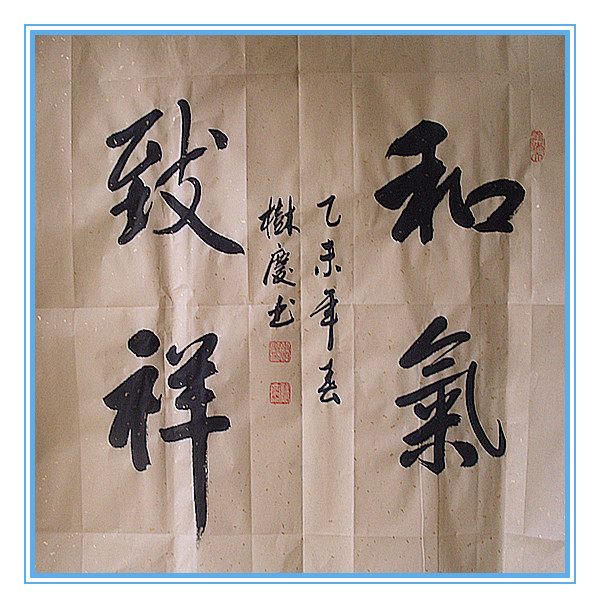 和氣
致祥
乙未年春
樹慶书